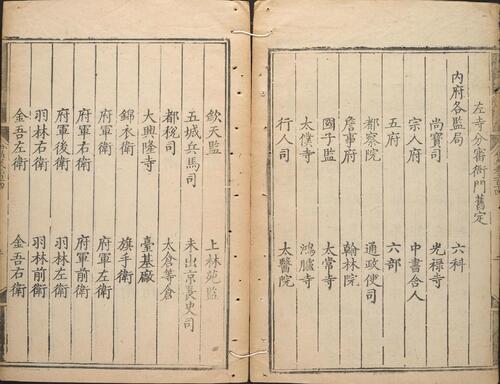 左寺分審衙門舊定
內府各監局 六科
尚寶司 光祿寺
宗人府 中書舍人
五府 六部
都察院 通政使司
詹事府 翰林院
國子監 太常寺
太僕寺 鴻臚寺
行人司 太醫院
欽天監 上林苑監
五城兵馬司 未出京長史司
都稅司 太倉等倉
大興隆寺 臺基廠
錦衣衛 旗手衛
府軍衛 府軍左衛
府軍右衛 府軍前衛
府軍後衛 羽林左衛
羽林右衛 羽林前衛
金吾左衛 金吾右衛